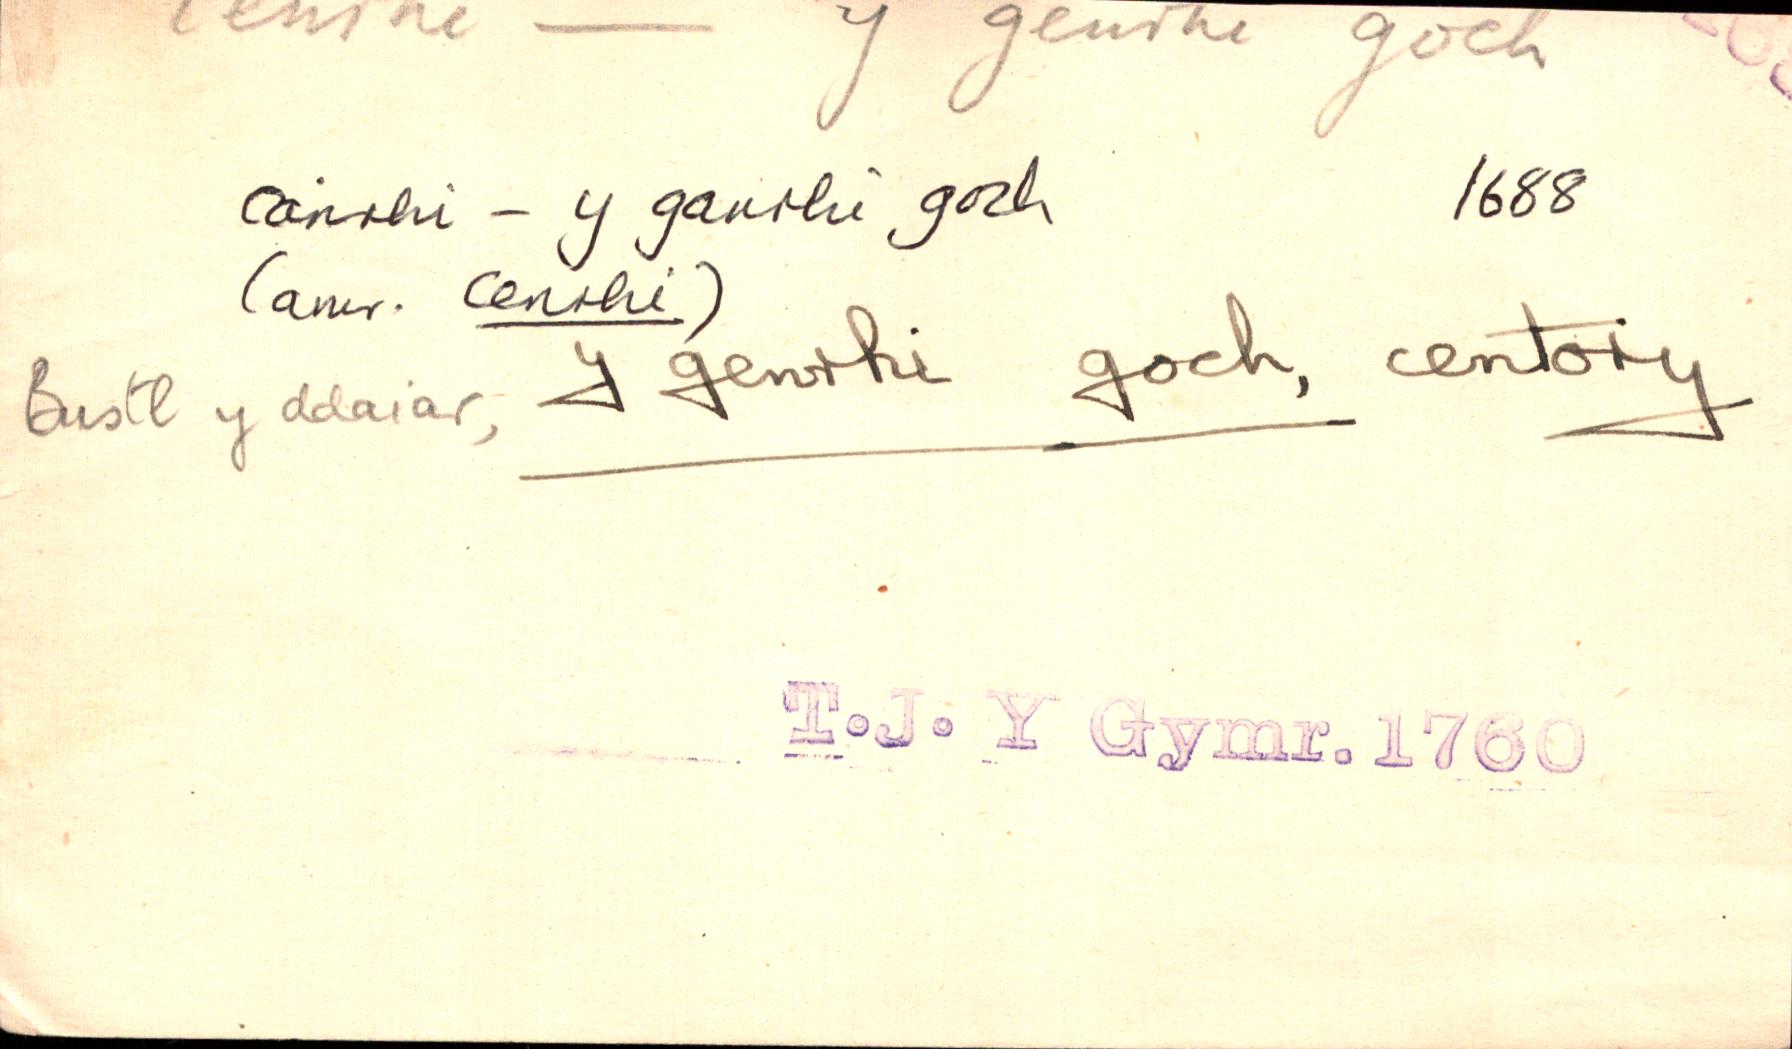 cenrhi — y genrhi goch
canrhi – y ganrhi goch 1688
(amr. cenrhi)
Bustl y ddaiar, y genrhi goch, centory
T.J. Y Gymr. 1760